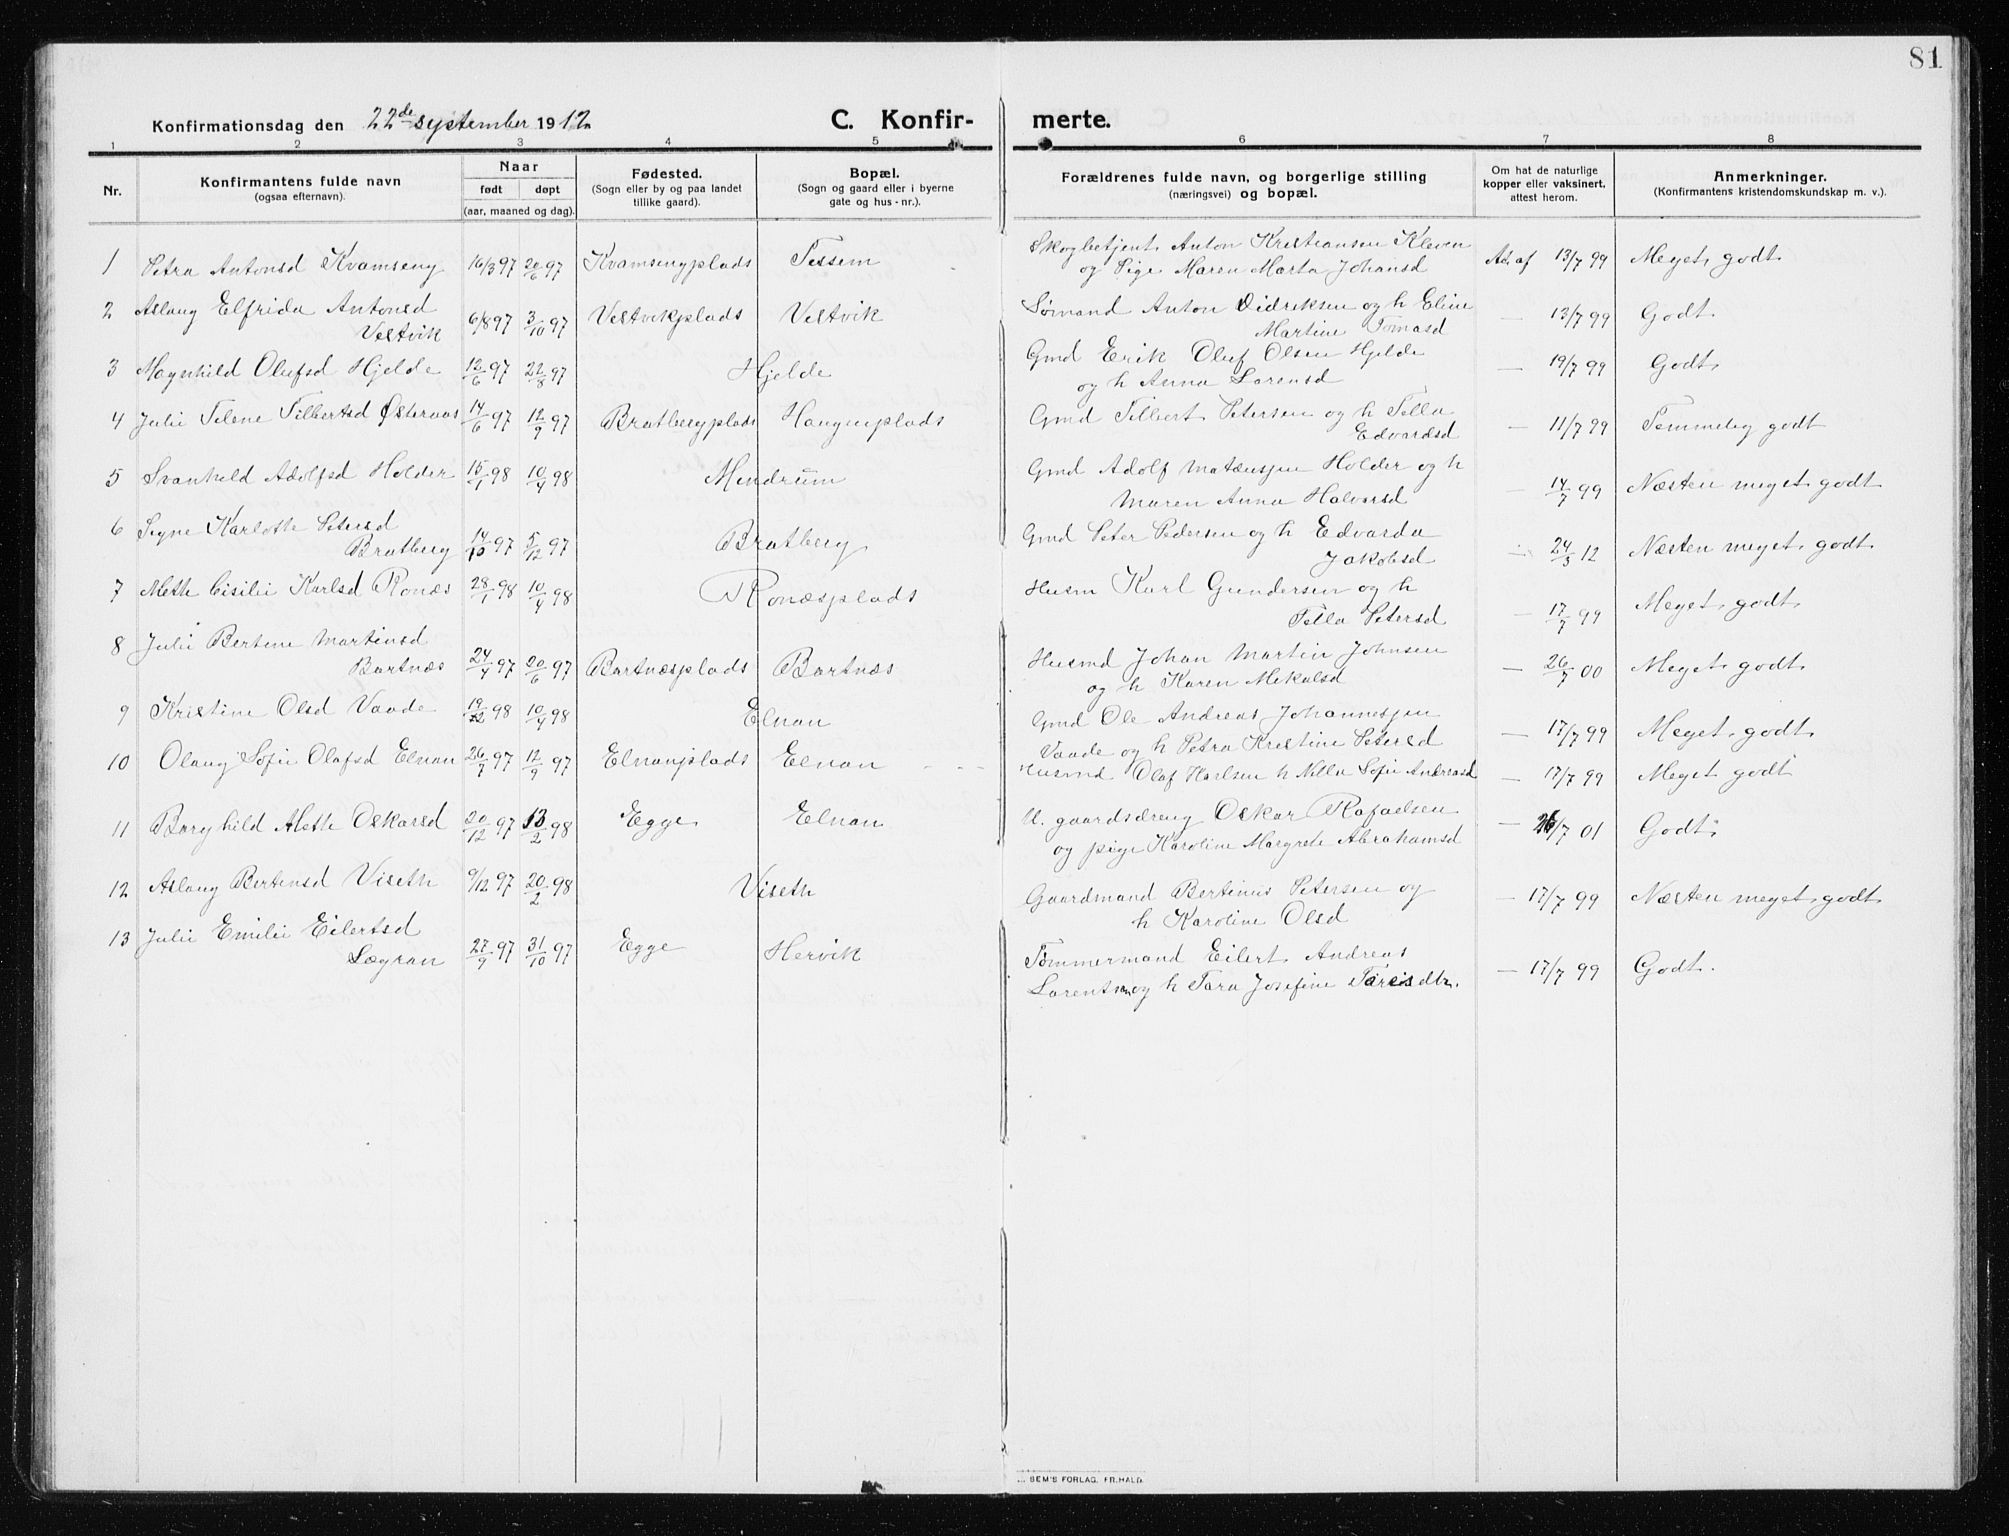 81
Konfirmationsdag den 22de september 1912
C. Konfirmerte.
1 2 3 4 5 6 7 8
Nr.
Konfirmantens fulde navn
(ogsaa efternavn).
Naar
født døpt
(aar, maaned og dag).
Fødested.
(Sogn eller by og paa landet
tillike gaard).
Bopæl.
(Sogn og gaard eller i byerne
gate og hus-nr.).
Forældrenes fulde navn, og borgerlige stilling
(næringsvei) og bopæl.
Om hat de naturlige
kopper eller vaksinert,
attest herom.
Anmerkninger.
(Konfirmantens kristendomskundskap m. v.).
1 Petra Antonsd Kvamseng 16/3 97 20/6 97 Kvamsengplads Tessem Skogbetjent Anton Kristiansen Kleven
og Pige Maren Marta Johansd At. af 13/7 99 Meget godt
2 Aslaug Elfrida Antonsd
Vestvik 6/8 97 3/10 97 Vestvikplads Vestvik Sømand Anton Didriksen og h Eline
Martine Tomasd — 13/7 99 Godt
3 Magnhild Olufsd Hjelde 12/6 97 22/8 97 Hjelde Gmd Erik Oluf Olsen Hjelde
og h Anna Lorensd — 19/7 99 Godt
4 Julie Tilene Tilbertsd Østeraas 14/6 97 12/9 97 Bratbergplads Haugenplads Gmd Tilbert Petersen og h Tella
Edvardsd — 11/7 99 Temmelig godt
5 Svanhild Adolfsd Holder 15/1 98 10/4 98 Mendrum Gmd Adolf Mateusjen Holder og h
Maren Anna Halvorsd — 14/7 99 Næsten meget godt
6 Signe Karlotte Petersd
Bratberg 14/10 97 5/12 97 Bratberg Gmd Peter Pedersen og h Edvarda
Jakobsd — 24/3 12 Næsten meget godt
7 Mette Cisilie Karlsd Ronæs 28/1 98 10/4 98 Ronæsplads Husm Karl Gundersen og h
Tella Petersd — 17/7 99 Meget godt
8 Julie Bertine Martinsd
Bartnæs 24/4 97 20/6 97 Bartnæsplads Bartnæs Husmd Johan Martin Johnsen
og h Karen Mekalsd — 26/7 00 Meget godt
9 Kristine Olsd Vaade 19/2 98 10/4 98 Elnan Gmd Ole Andreas Johannesjen
Vaade og h Petra Kristine Petersd — 17/7 99 Meget godt
10 Olaug Sofie Olafsd Elnan 26/7 97 12/9 97 Elnanplads Elnan Husmd Olaf Karlsen h Nella Sofie Andreasd — 17/7 99 Meget godt
11 Borghild Mette Oskarsd 20/12 97 13/2 98 Egge Elnan U. gaardsdreng Oskar Rafaelsen
og pige Karoline Margrete Abrahamsd — 26/7 01 Godt
12 Aslaug Bertinsd Viseth 9/12 97 20/2 98 Viseth Gaardmand Bertinus Petersen og
h Karoline Olsd — 17/7 99 Næsten meget godt
13 Julie Emilie Eilertsd
Lægran 27/9 97 31/10 97 Egge Hervik Tømmermand Eilert Andreas
Lorentsen og h Tora Josefine — 17/7 99 Godt.
SEM'S FORLAG. FR.HALD.